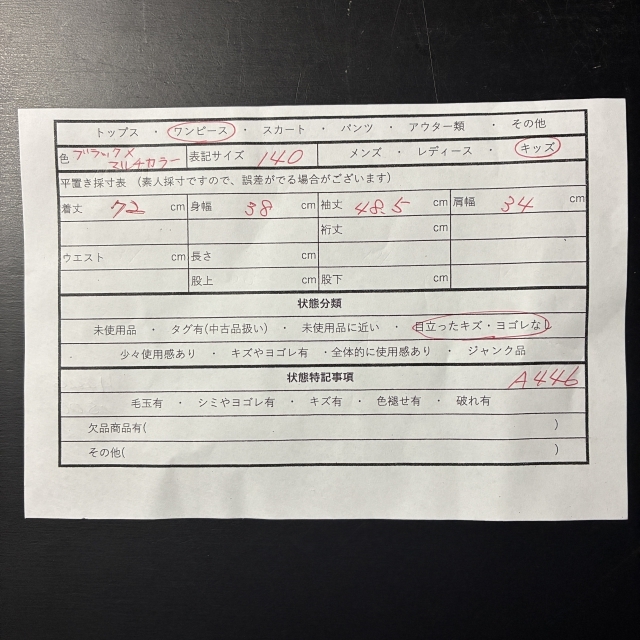 トップス ・ ワンピース ・ スカート ・ パンツ ・ アウター類 ・ その他
色 ブラック×マルチカラー 表記サイズ 140 メンズ ・ レディース ・ キッズ
平置き採寸表 （素人採寸ですので、誤差がでる場合がございます）
着丈 72 cm 身幅 38 cm 袖丈 48.5 cm 肩幅 34 cm
裄丈 cm
ウエスト cm 長さ cm
股上 cm 股下 cm
状態分類
未使用品 ・ タグ有(中古品扱い) ・ 未使用品に近い ・ 目立ったキズ・ヨゴレなし
少々使用感あり ・ キズやヨゴレ有 ・全体的に使用感あり ・ ジャンク品
状態特記事項 A446
毛玉有 ・ シミやヨゴレ有 ・ キズ有 ・ 色褪せ有 ・ 破れ有
欠品商品有( )
その他( )